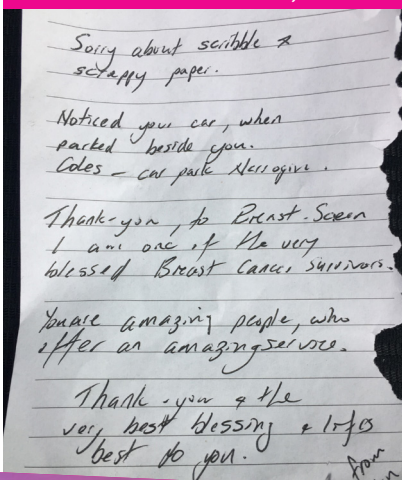 Sorry about scribble &
scrappy paper.
Noticed your car, when
parked beside you.
Coles - car park Narrogin.
Thank-you, to Breast-Screen
I am one of the very
blessed Breast Cancer Survivors.
You are amazing people, who
offer an amazing service.
Thank-you & the
very best blessing & lifes
best to you.
from